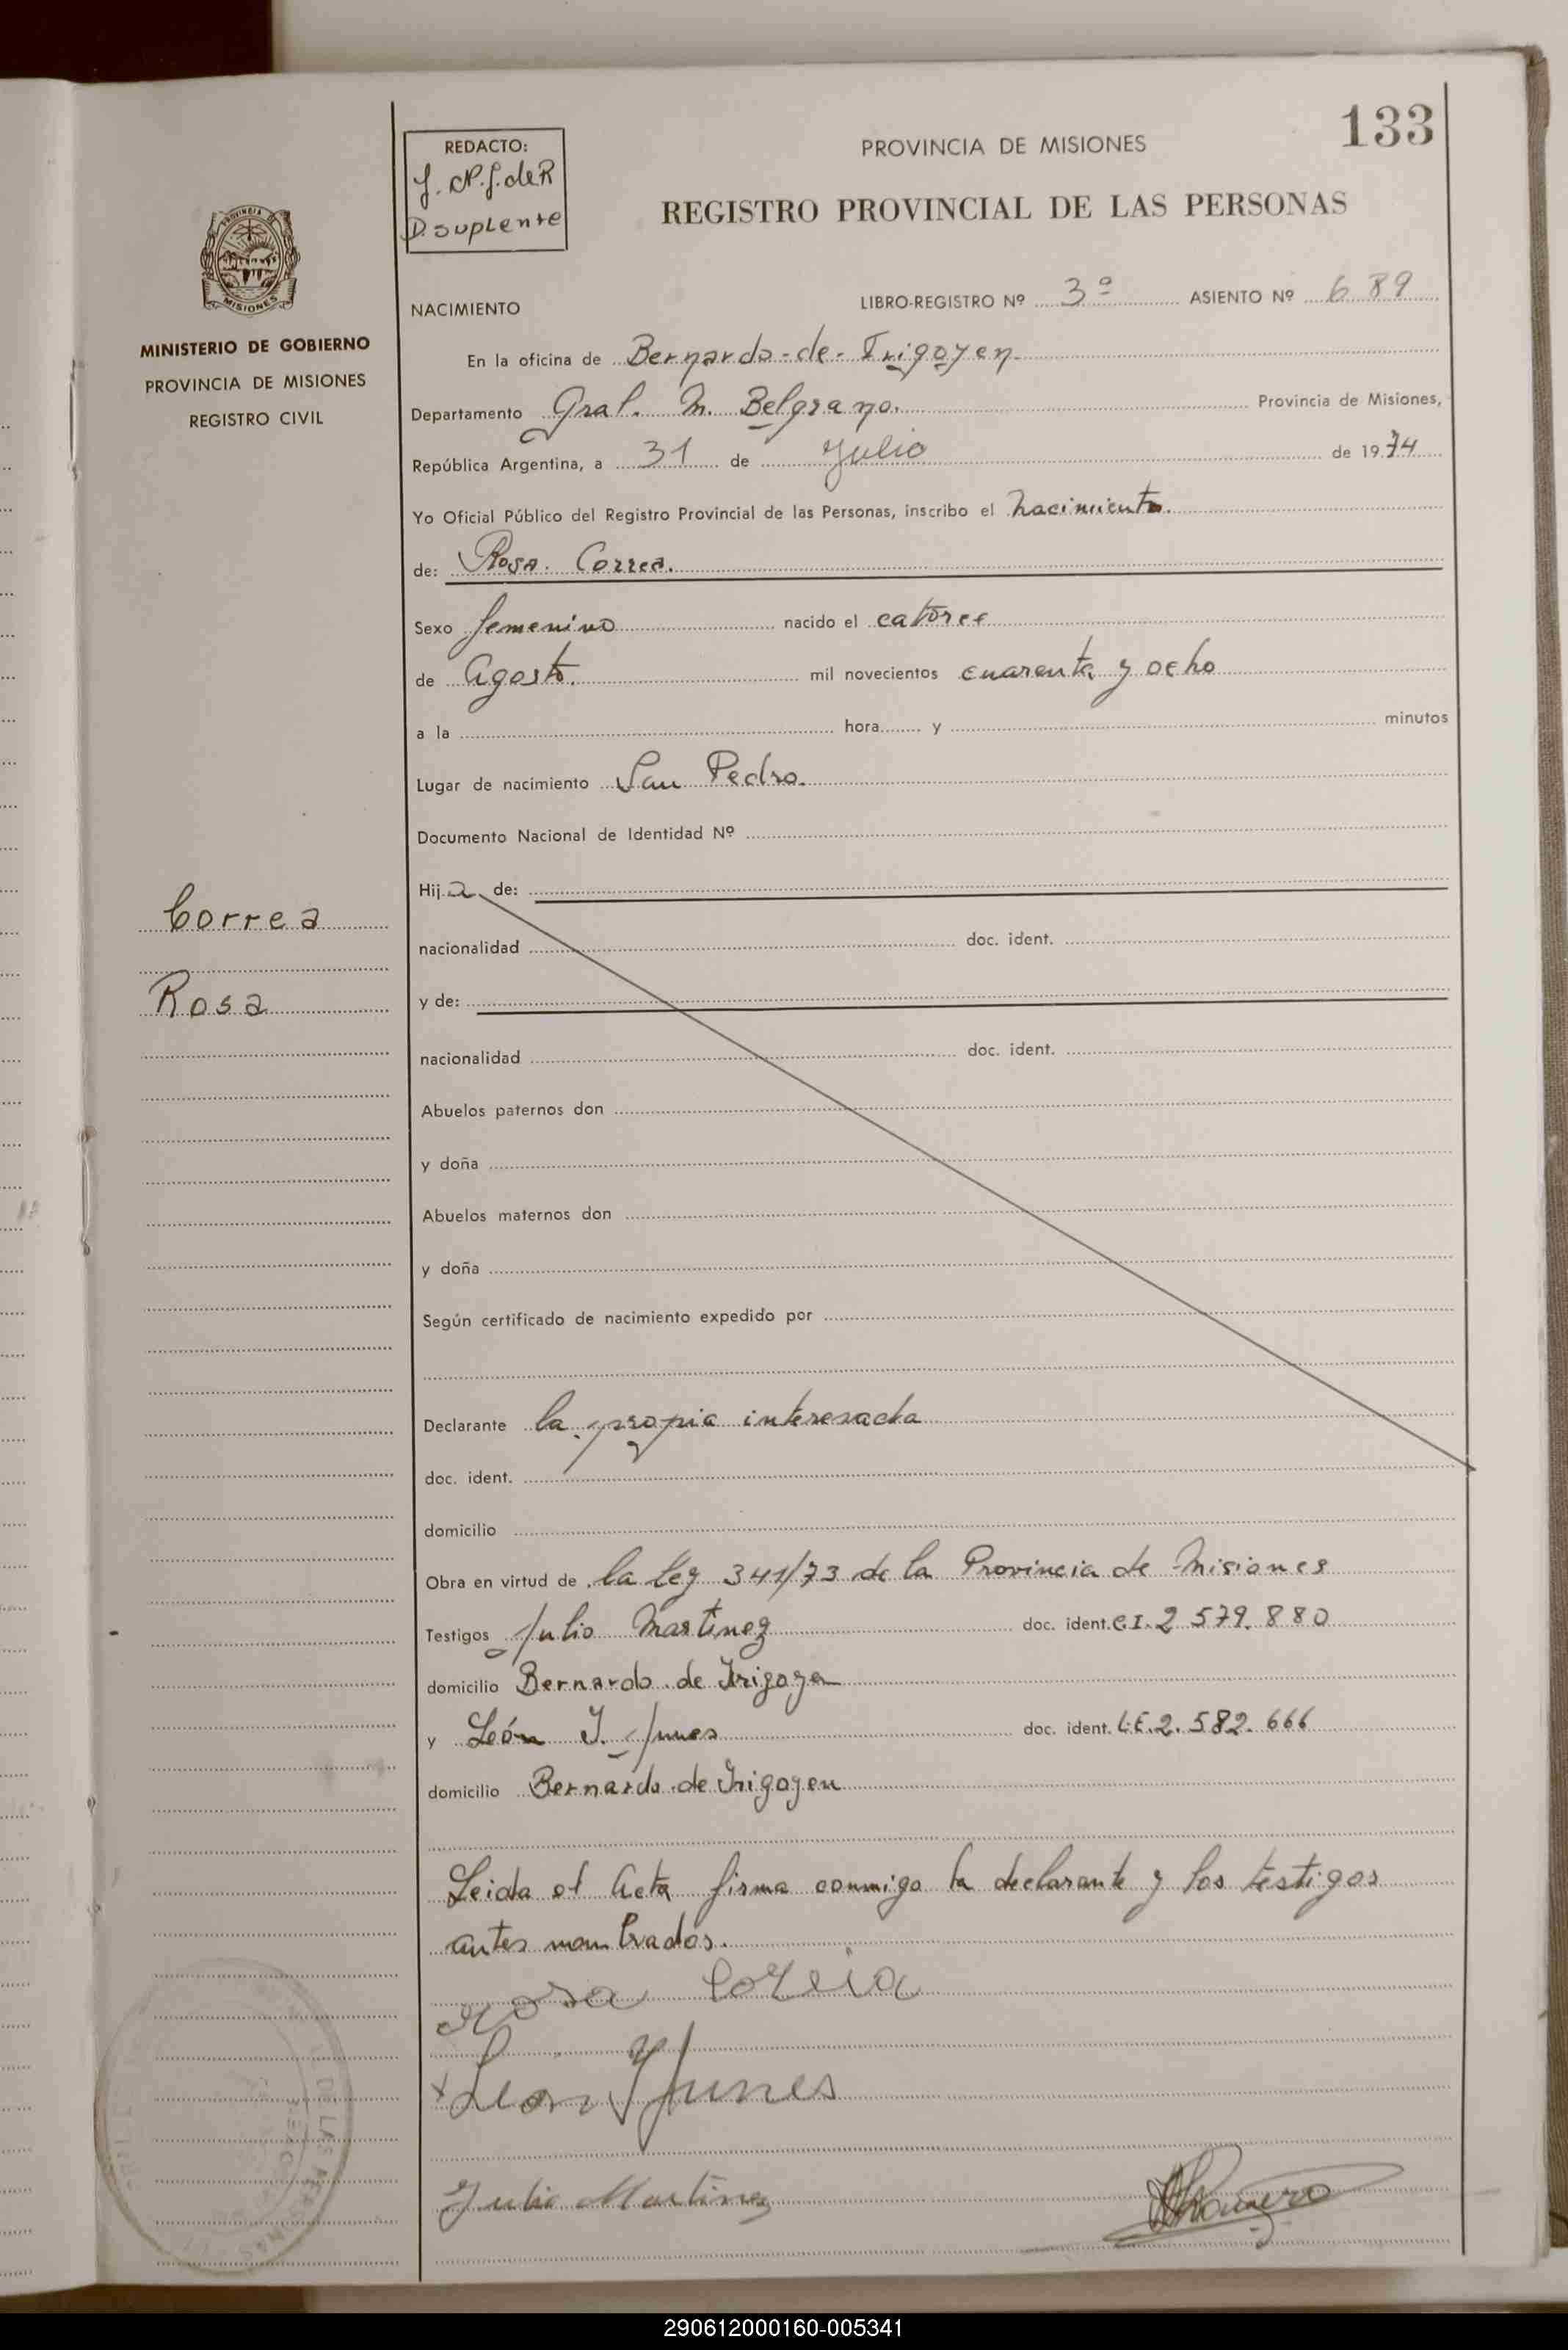 133
REDACTO:
D. suplente
PROVINCIA DE MISIONES
REGISTRO PROVINCIAL DE LAS PERSONAS
PROVINCIA DE
MISIONES
MINISTERIO DE GOBIERNO
PROVINCIA DE MISIONES
REGISTRO CIVIL
NACIMIENTO
LIBRO-REGISTRO Nº 3º ASIENTO Nº 689
En la oficina de Bernardo-de-Irigoyen
Departamento Gral. M. Belgrano. Provincia de Misiones,
República Argentina, a 31 de Julio de 1974
Yo Oficial Público del Registro Provincial de las Personas, inscribo el nacimiento.
de: Rosa. Correa.
Sexo femenino nacido el catorce
de Agosto. mil novecientos cuarenta y ocho
a la hora y minutos
Lugar de nacimiento San Pedro.
Documento Nacional de Identidad Nº
Hija de:
Correa
nacionalidad doc. ident.
Rosa
y de:
nacionalidad doc. ident.
Abuelos paternos don
y doña
Abuelos maternos don
y doña
Según certificado de nacimiento expedido por
Declarante la propia interesada
doc. ident.
domicilio
Obra en virtud de la ley 341/73 de la Provincia de Misiones
Testigos Julio Martinez doc. ident. C.I. 2.579.880
domicilio Bernardo de Irigoyen
y León Y. Junes doc. ident. L.E. 2.582.666
domicilio Bernardo de Irigoyen
Leida el Acta firma conmigo la declarante y los testigos
antes nombrados.
rosa Correia
Leon Y Junes
Julio Martinez
Romero
290612000160-005341